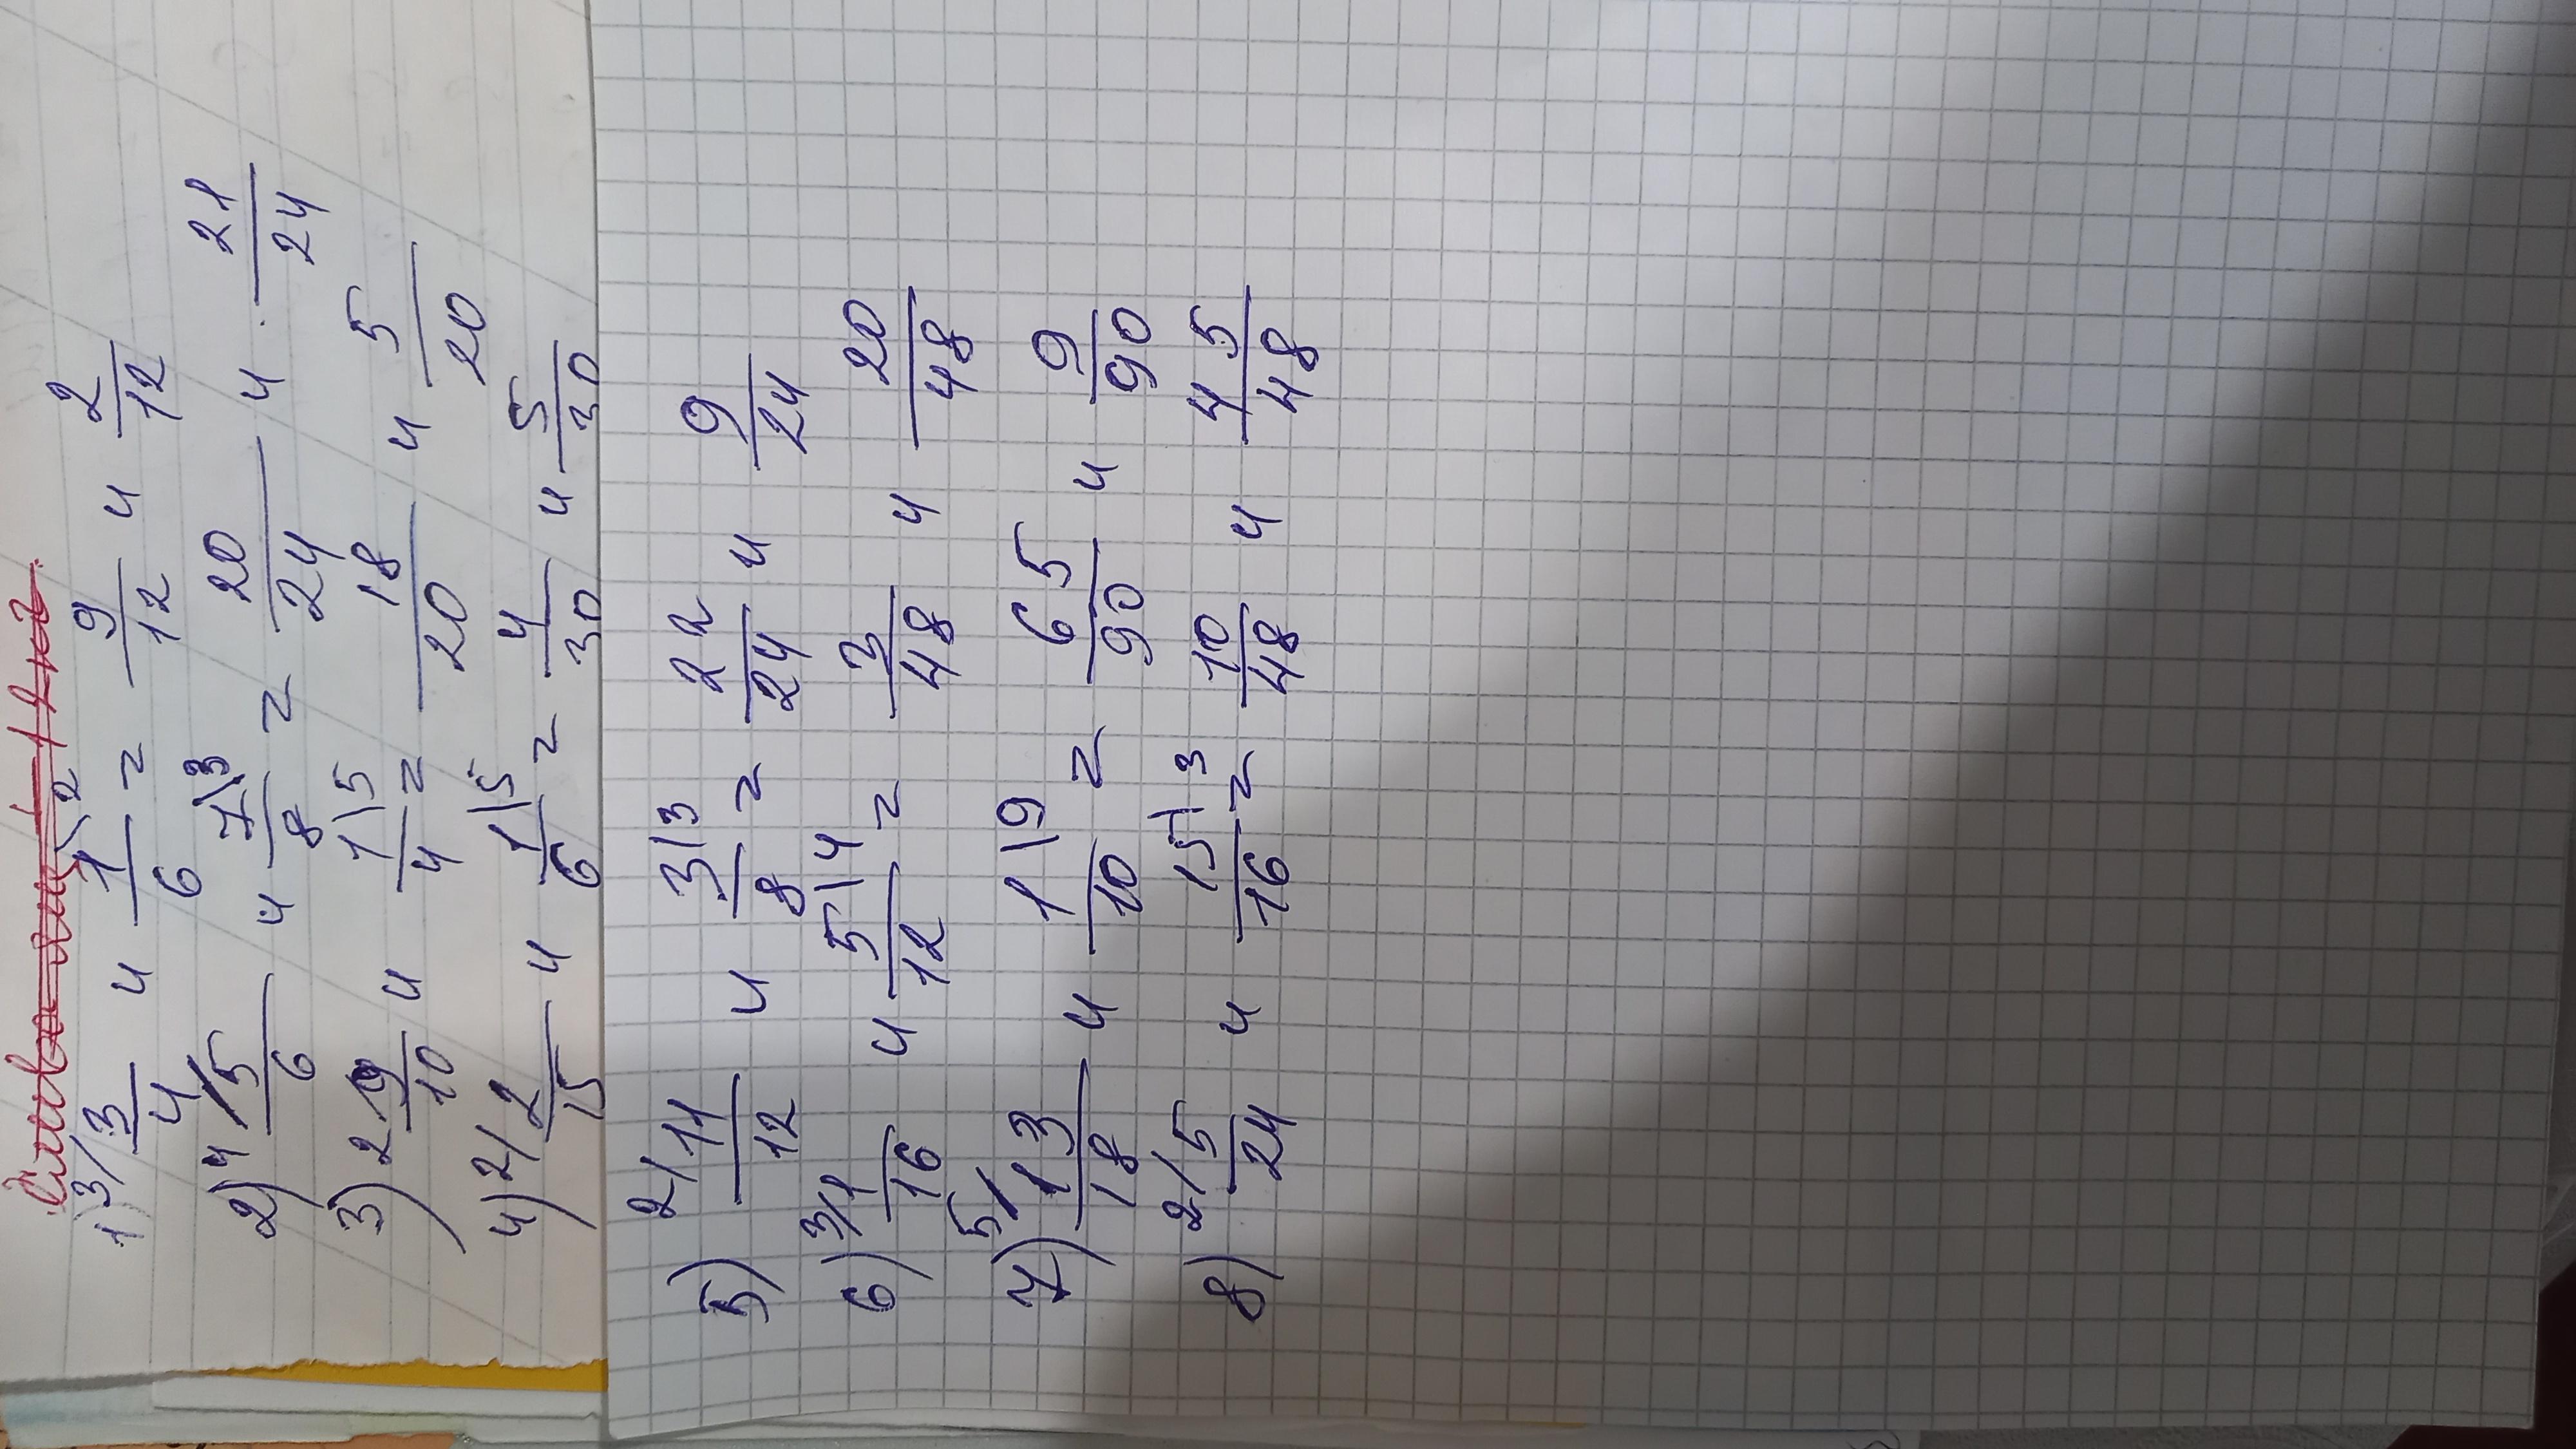 1) 3/ 3/4 и 1/6 \2 = 9/12 и 2/12
2) 4/ 5/6 и 7/8 \3 = 20/24 и 21/24
3) 2 9/10 и 1/4 \5 = 18/20 и 5/20
4) 2/ 2/15 и 1/6 \5 = 4/30 и 5/30
5) 2/ 11/12 и 3/8 \3 = 22/24 и 9/24
6) 3/ 1/16 и 5/12 \4 = 3/48 и 20/48
7) 5/ 13/18 и 1/10 \9 = 65/90 и 9/90
8) 2/ 5/24 и 15/16 \3 = 10/48 и 45/48